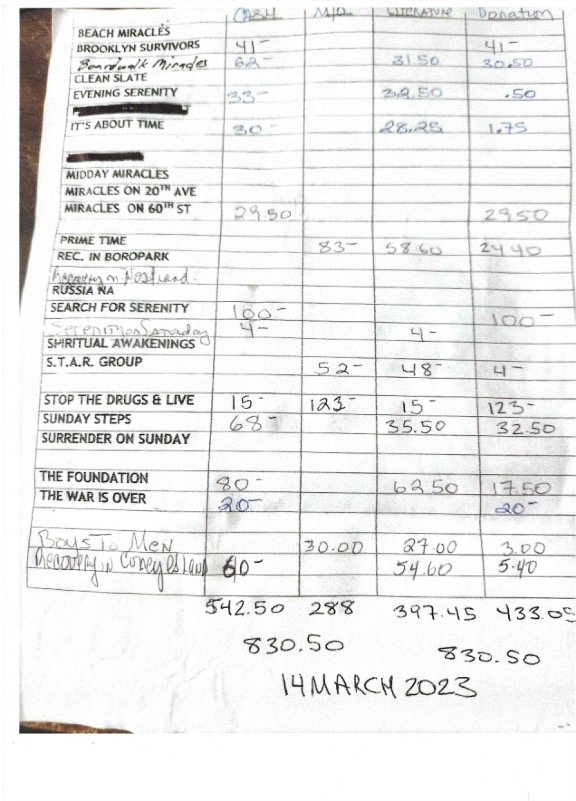 CASH M/O LITERATURE Donation
BEACH MIRACLES
BROOKLYN SURVIVORS 41- 41-
Boardwalk Miracles 62- 31.50 30.50
CLEAN SLATE
EVENING SERENITY 33- 32.50 .50
IT'S ABOUT TIME 30- 28.25 1.75
MIDDAY MIRACLES
MIRACLES ON 20TH AVE
MIRACLES ON 60TH ST 29.50 29.50
PRIME TIME 83- 58.60 24.40
REC. IN BOROPARK
Recovery on Nostrand.
RUSSIA NA
SEARCH FOR SERENITY 100- 100-
Saturday 4- 4-
SPIRITUAL AWAKENINGS
S.T.A.R. GROUP 52- 48- 4-
STOP THE DRUGS & LIVE 15- 123- 15- 123-
SUNDAY STEPS 68- 35.50 32.50
SURRENDER ON SUNDAY
THE FOUNDATION 80- 62.50 17.50
THE WAR IS OVER 20- 20-
Boys To Men 30.00 27.00 3.00
Recovery in Coney Island 60- 54.60 5.40
542.50 288 397.45 433.05
830.50 830.50
14 MARCH 2023